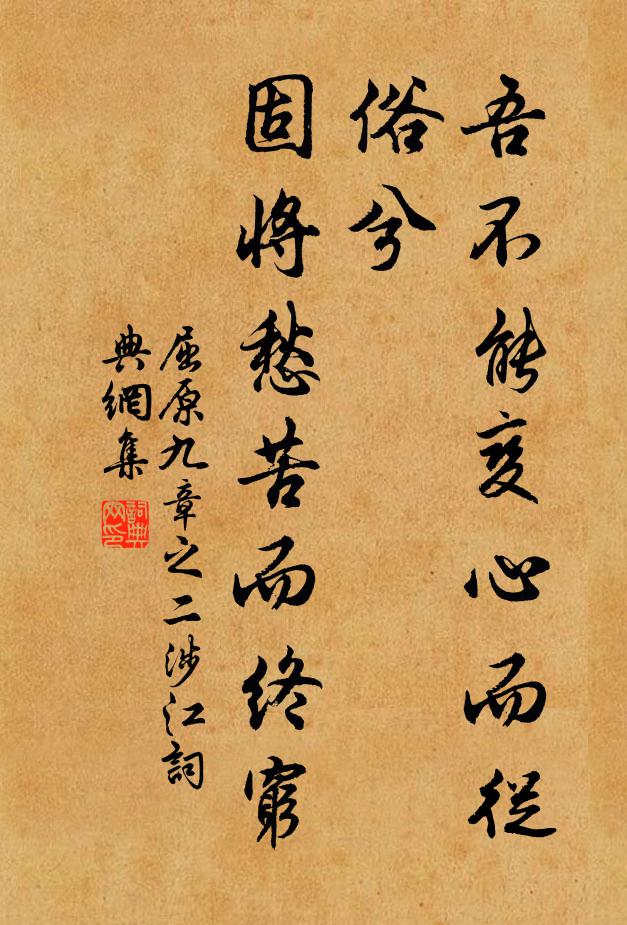 吾不能变心而從
俗兮
固將愁苦而终窮
屈原九章之二涉江詞
典網集
詞典
网印